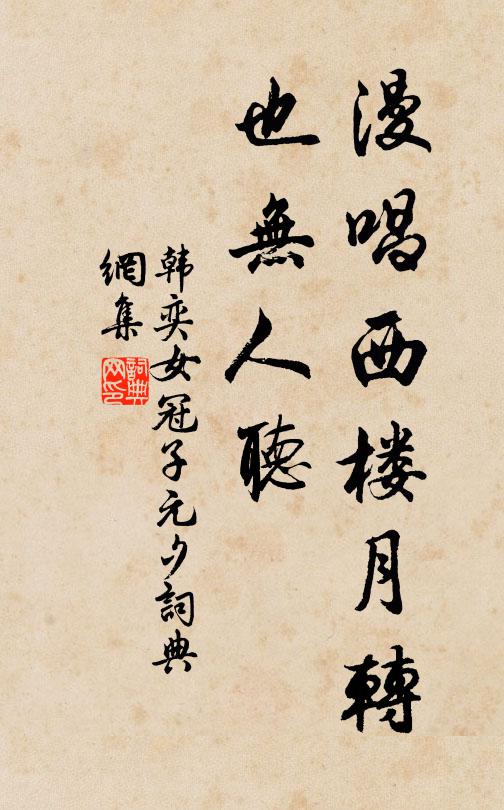 漫唱西楼月轉
也無人聽
韩奕女冠子元夕詞典
網集
詞典
网印